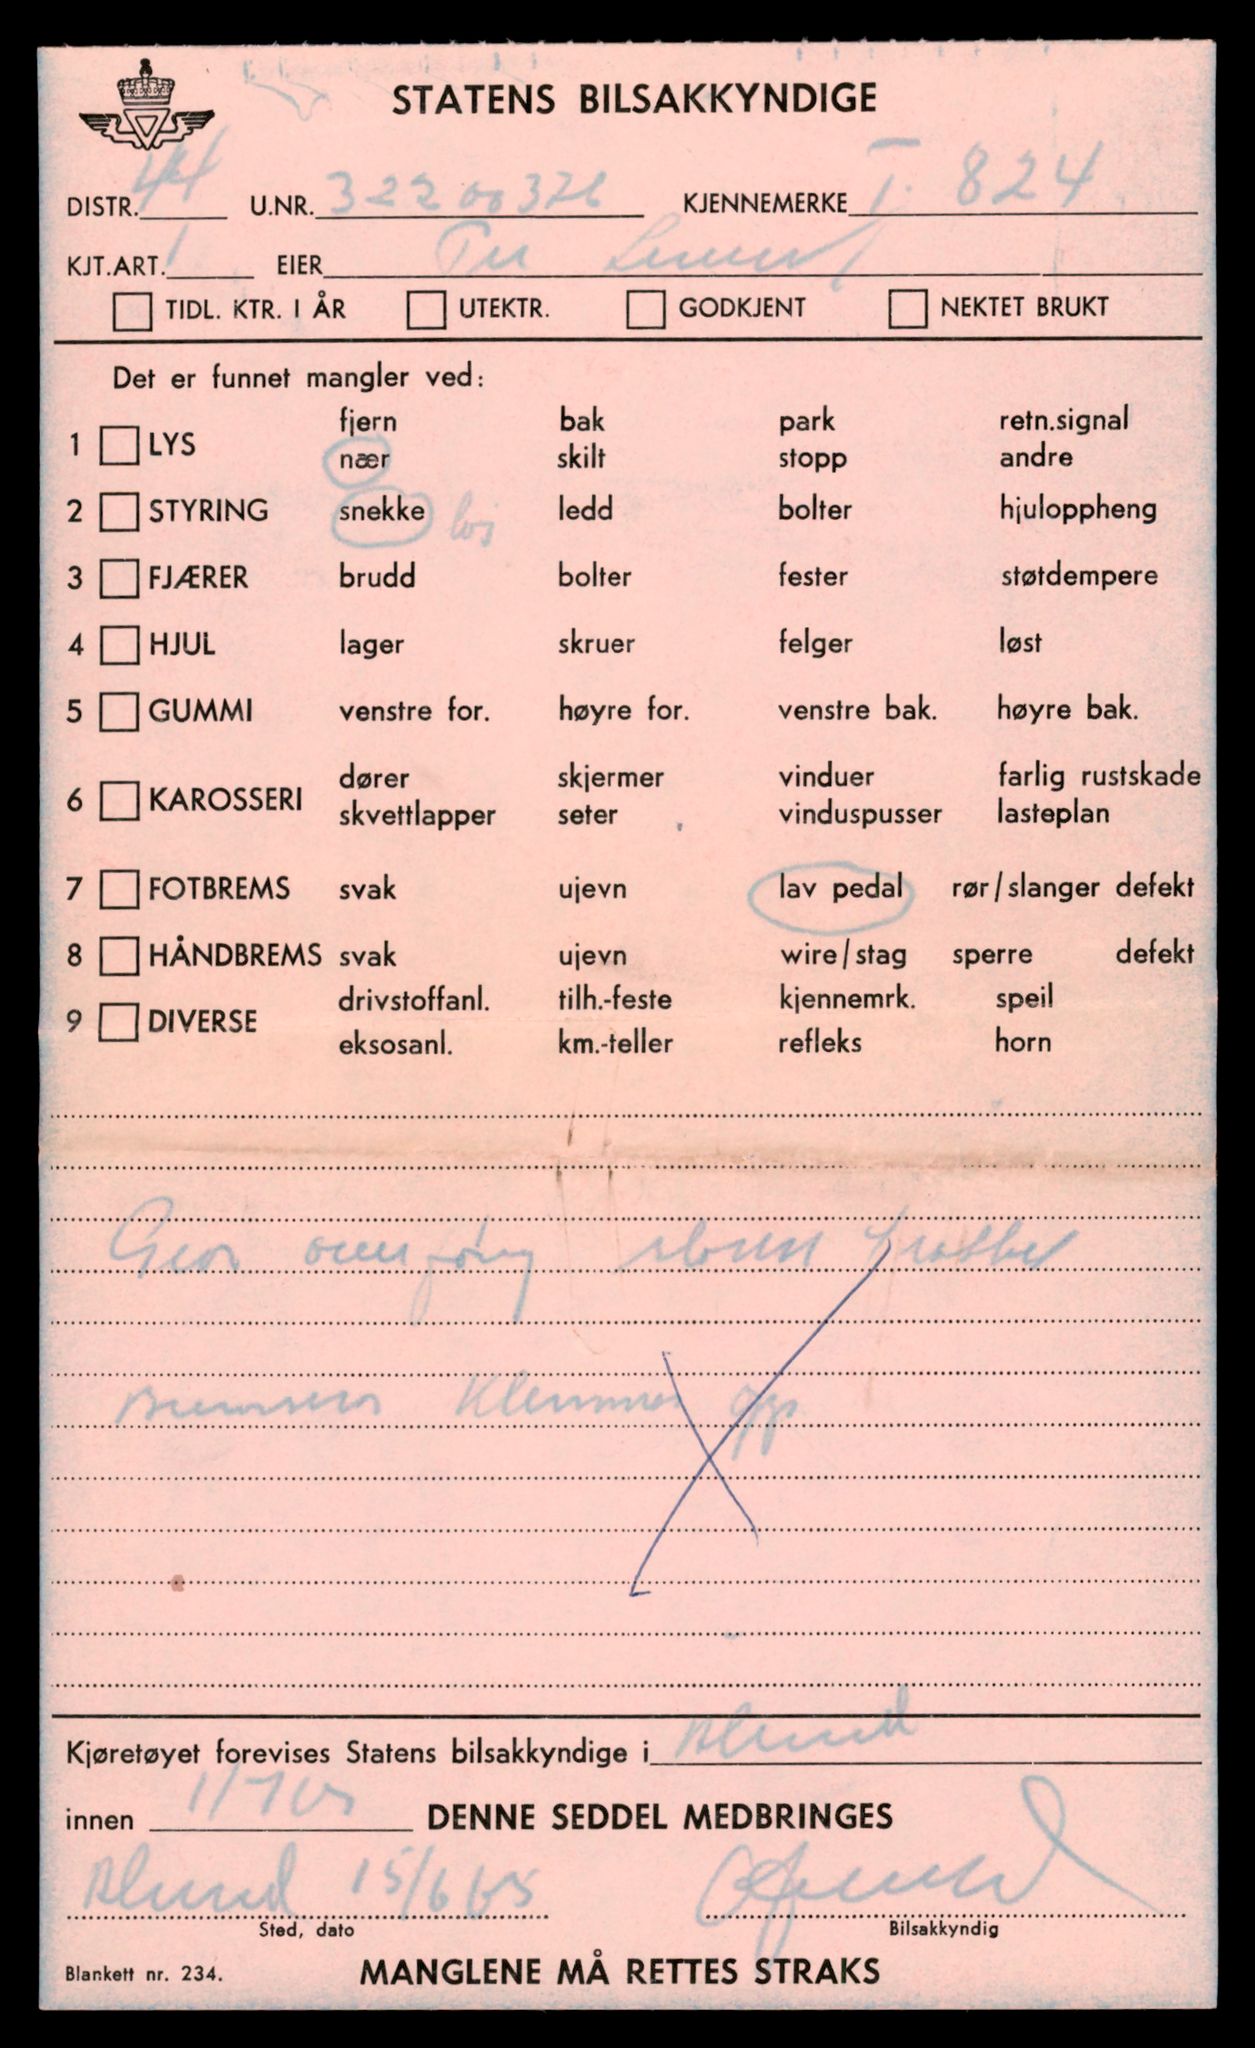 STATENS BILSAKKYNDIGE
DISTR. 44 U.NR. 32200326 KJENNEMERKE T. 824
KJT.ART. 1 EIER Per
TIDL. KTR. I ÅR UTEKTR. GODKJENT NEKTET BRUKT
Det er funnet mangler ved:
1 LYS fjern bak park retn.signal
nær skilt stopp andre
2 STYRING snekke løs ledd bolter hjuloppheng
3 FJÆRER brudd bolter fester støtdempere
4 HJUL lager skruer felger løst
5 GUMMI venstre for. høyre for. venstre bak. høyre bak.
6 KAROSSERI dører skjermer vinduer farlig rustskade
skvettlapper seter vinduspusser lasteplan
7 FOTBREMS svak ujevn lav pedal rør/slanger defekt
8 HÅNDBREMS svak ujevn wire/stag sperre defekt
9 DIVERSE drivstoffanl. tilh.-feste kjennemrk. speil
eksosanl. km.-teller refleks horn
Kjøretøyet forevises Statens bilsakkyndige i Ålesund
innen 1/7 65 DENNE SEDDEL MEDBRINGES
Ålesund 15/6 65
Sted, dato Bilsakkyndig
Blankett nr. 234. MANGLENE MÅ RETTES STRAKS